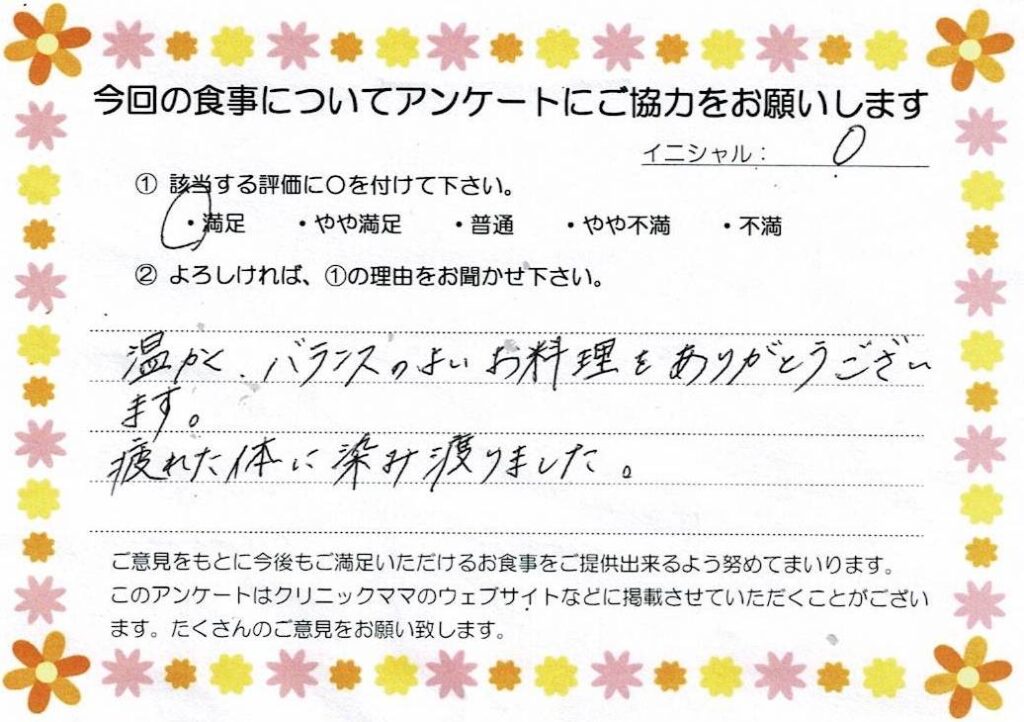 今回の食事についてアンケートにご協力をお願いします
イニシャル： O
① 該当する評価に○を付けて下さい。
・満足　・やや満足　・普通　・やや不満　・不満
② よろしければ、①の理由をお聞かせ下さい。
温かく、バランスのよいお料理をありがとうござい
ます。
疲れた体に染み渡りました。
ご意見をもとに今後もご満足いただけるお食事をご提供出来るよう努めてまいります。
このアンケートはクリニックママのウェブサイトなどに掲載させていただくことがござい
ます。たくさんのご意見をお願い致します。